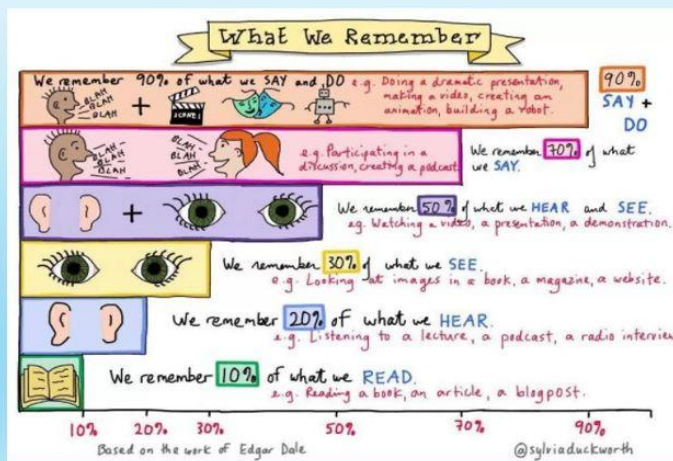 What We Remember
We remember 90% of what we SAY and DO e.g. Doing a dramatic presentation,
making a video, creating an
animation, building a robot.
BLAH
BLAH
BLAH
+
SCENE 1
90%
SAY +
DO
BLAH
BLAH
BLAH
BLAH
BLAH
BLAH
e.g. Participating in a
discussion, creating a podcast
We remember 70% of what
we SAY.
+
We remember 50% of what we HEAR and SEE.
eg. Watching a video, a presentation, a demonstration.
We remember 30% of what we SEE.
e.g. Looking at images in a book, a magazine, a website.
We remember 20% of what we HEAR.
e.g. Listening to a lecture, a podcast, a radio interview
We remember 10% of what we READ.
e.g. Reading a book, an article, a blogpost.
10% 20% 30% 50% 70% 90%
Based on the work of Edgar Dale @sylviaduckworth